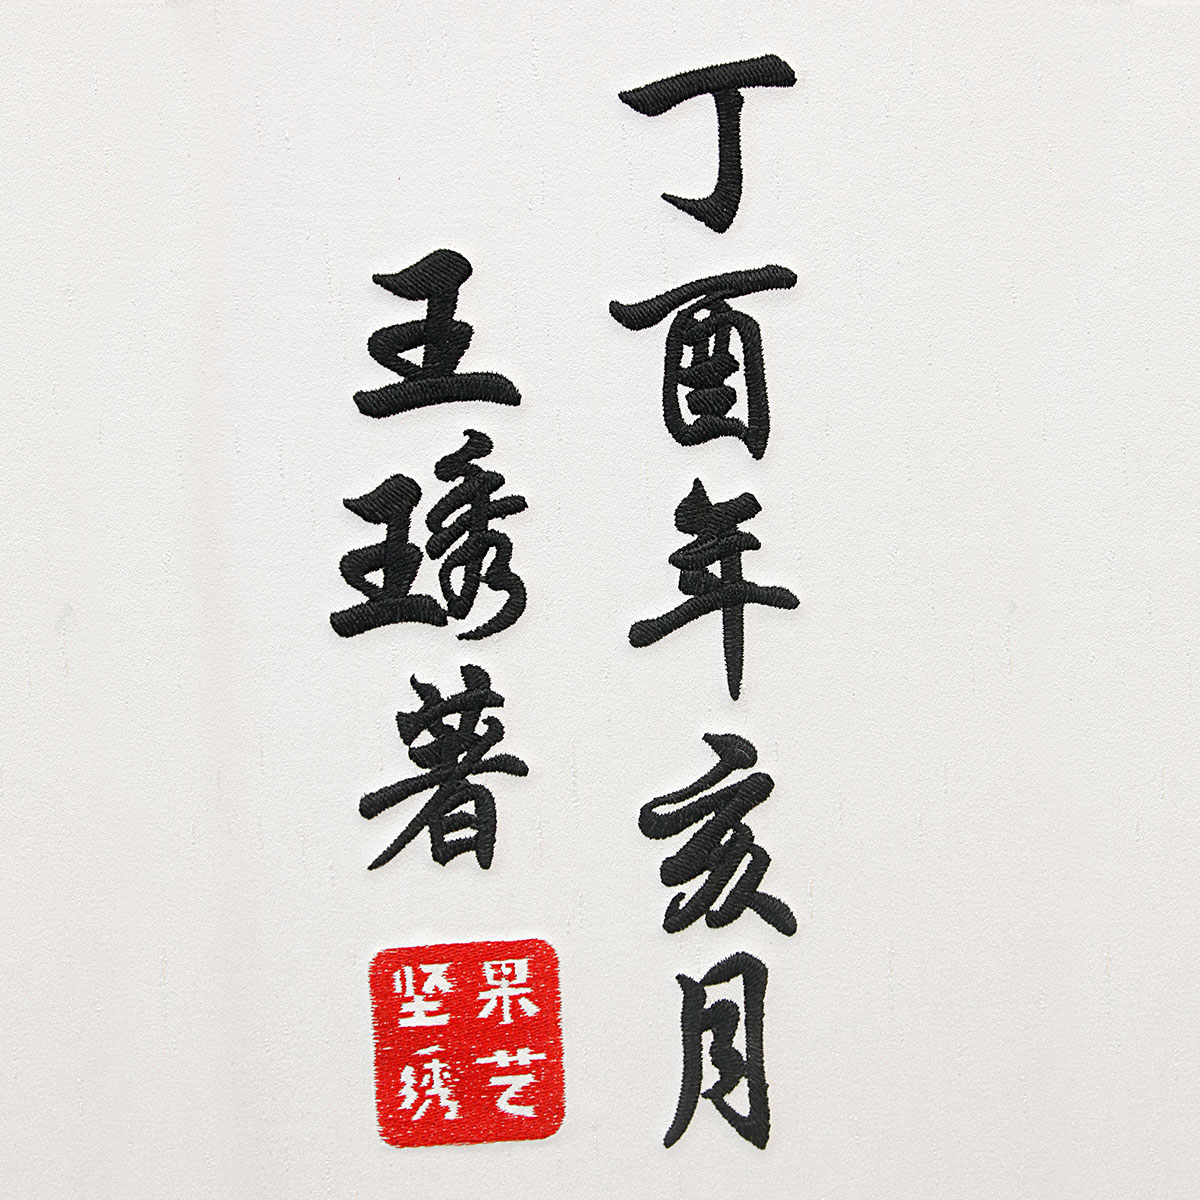 丁酉年亥月
王琇著
果艺
坚绣